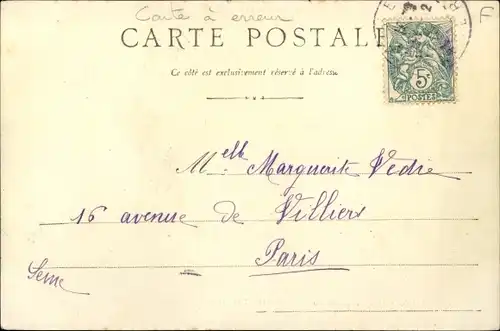 Carte à erreur
D
CARTE POSTALE
Ce côté est exclusivement réservé à l'adresse
5c
POSTES
Melle Marguerite Vedie
16 avenue de Villiers
Paris
Seine